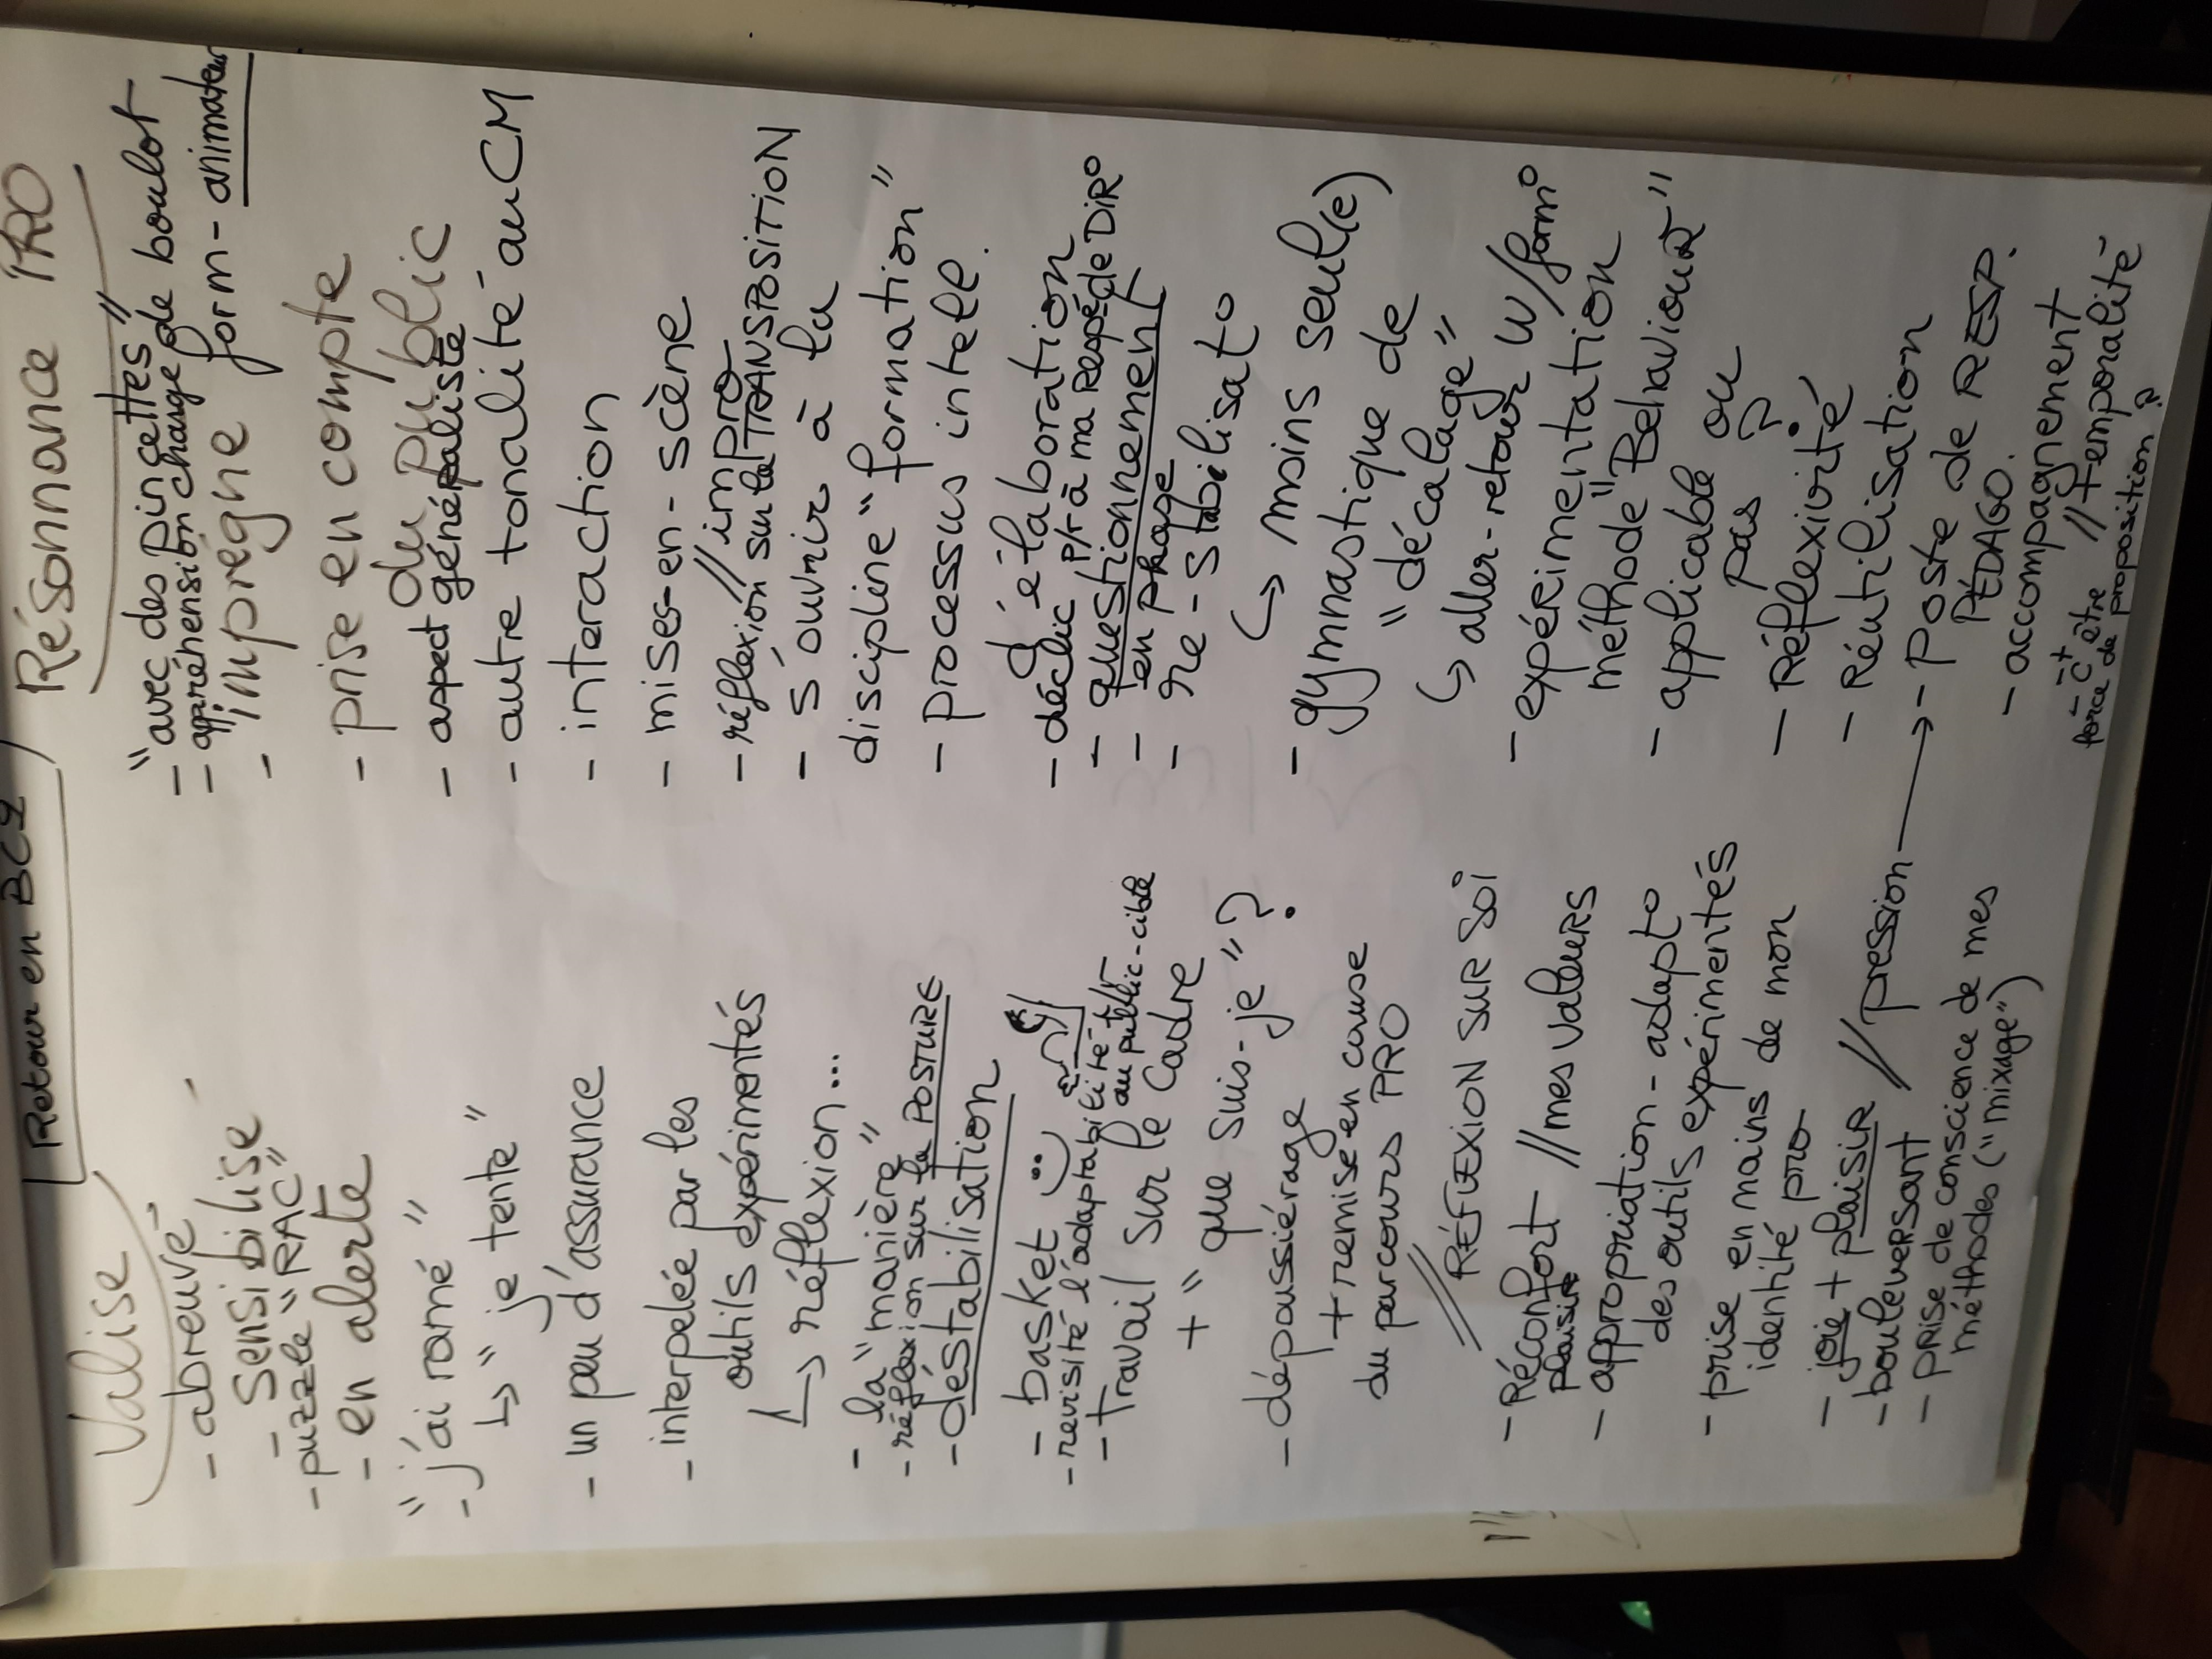 Retour en BC2
Valise
- abreuvé
- sensibilisé
- puzzle "RAC"
- en alerte
- "j'ai ramé"
↳ "je tente"
- un peu d'assurance
- interpelée par les
outils expérimentés
↳ réflexion...
- la "manière"
- réflexion sur la POSTURE
- déstabilisation
- basket
- revisité l'adaptabilité p/r
au public-cible
- Travail sur le Cadre
+ "que suis-je"?
- dépoussiérage
+ remise en cause
du parcours PRO
// RÉFLEXION SUR SOI
- Réconfort // mes valeurs
plaisir
- appropriation - adapt°
des outils expérimentés
- prise en mains de mon
identité pro
- joie + plaisir // pression →
- bouleversant
- prise de conscience de mes
méthodes ("mixage")
Résonnance PRO
- "avec des pincettes"
- appréhension change de boulot
- imprègne form-animateur
- prise en compte
du public
- aspect généraliste
- autre tonalité au CM
- interaction
- mises-en-scène
// impro
- réflexion sur la TRANSPOSITION
- s'ouvrir à la
discipline "formation"
- processus intell.
d'élaboration
- déclic p/r à ma Resp. de DIR°
- questionnement
- en phase
- re-stabilisat°
↳ moins seul(e)
- gymnastique de
"décalage"
↳ aller-retour W/form°
- expérimentation
méthode "Behaviour"
- applicable ou
pas?
- Réflexivité
- Réutilisation
- Poste de RESP.
PÉDAGO.
- accompagnement
- c̄t être // temporalité
force de proposition?